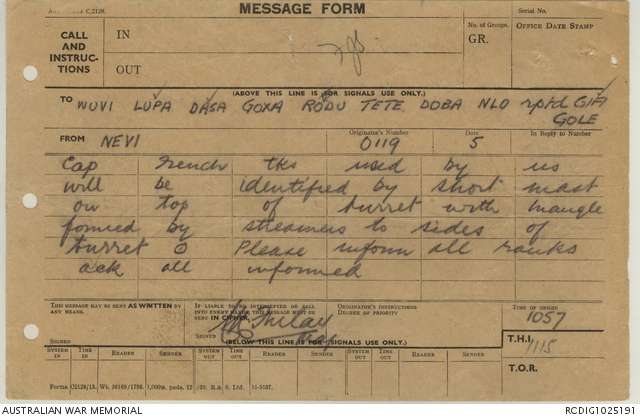 C.2128.
MESSAGE FORM
Serial No.
CALL AND INSTRUC-TIONS
IN
OUT
No. of Groups.
GR.
OFFICE DATE STAMP
(ABOVE THIS LINE IS FOR SIGNALS USE ONLY.)
TO WUVI LUPA DASA GOXA RODU TETE DOBA NLO rptd GIFI
GOLE
FROM NEVI
Originator's Number
0119
Date
5
In Reply to Number
Cap French tks used by us
will be identified by short mast
on top of turret with triangle
formed by streamers to sides of
turret o Please inform all ranks
ack all informed
THIS MESSAGE MAY BE SENT AS WRITTEN BY ANY MEANS.
SIGNED
IF LIABLE TO BE INTERCEPTED OR FALL INTO ENEMY HANDS, THIS MESSAGE MUST BE SENT IN CIPHER.
SIGNED
ORIGINATOR'S INSTRUCTIONS
DEGREE OF PRIORITY
TIME OF ORIGIN
1057
(BELOW THIS LINE IS FOR SIGNALS USE ONLY.)
T.H.I. 1115
T.O.R.
SYSTEM IN
TIME IN
READER
SENDER
SYSTEM OUT
TIME OUT
READER
SENDER
SYSTEM OUT
TIME OUT
READER
SENDER
AUSTRALIAN WAR MEMORIAL
RCDIG1025191